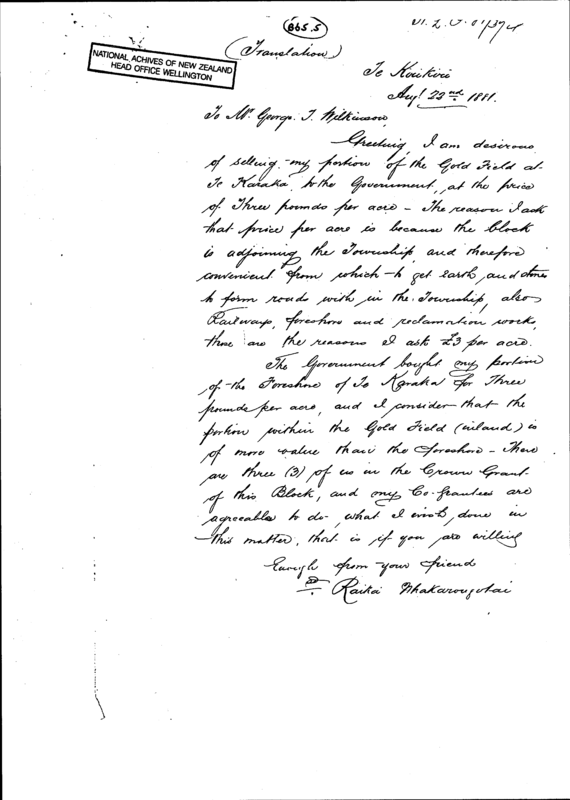 B65.5
(Translation)
NATIONAL ACHIVES OF NEW ZEALAND
HEAD OFFICE WELLINGTON
Te Kouti
Augt 22nd 1881.
To Mr. George. T. Wilkinson,
Greeting, I am desirous
of selling my portion of the Gold Field at
Te Karaka, to the Government, at the price
of Three pounds per acre - The reason I ask
that price per acre is because the block
is adjoining the Township, and therefore
convenient from which to get earth, and stones
to form roads with in the Township, also
Railways, foreshore and reclamation work,
these are the reasons I ask £3 per acre.
The Government bought my portion
of the Foreshore of Te Karaka for Three
pounds per acre, and I consider that the
portion within the Gold Field (inland) is
of more value than the foreshore - There
are three (3) of us in the Crown Grant
of this Block, and my Co-grantees are
agreeable to do what I wish, done in
this matter, that is if you are willing
Enough from your friend
Raika Whakarongotai